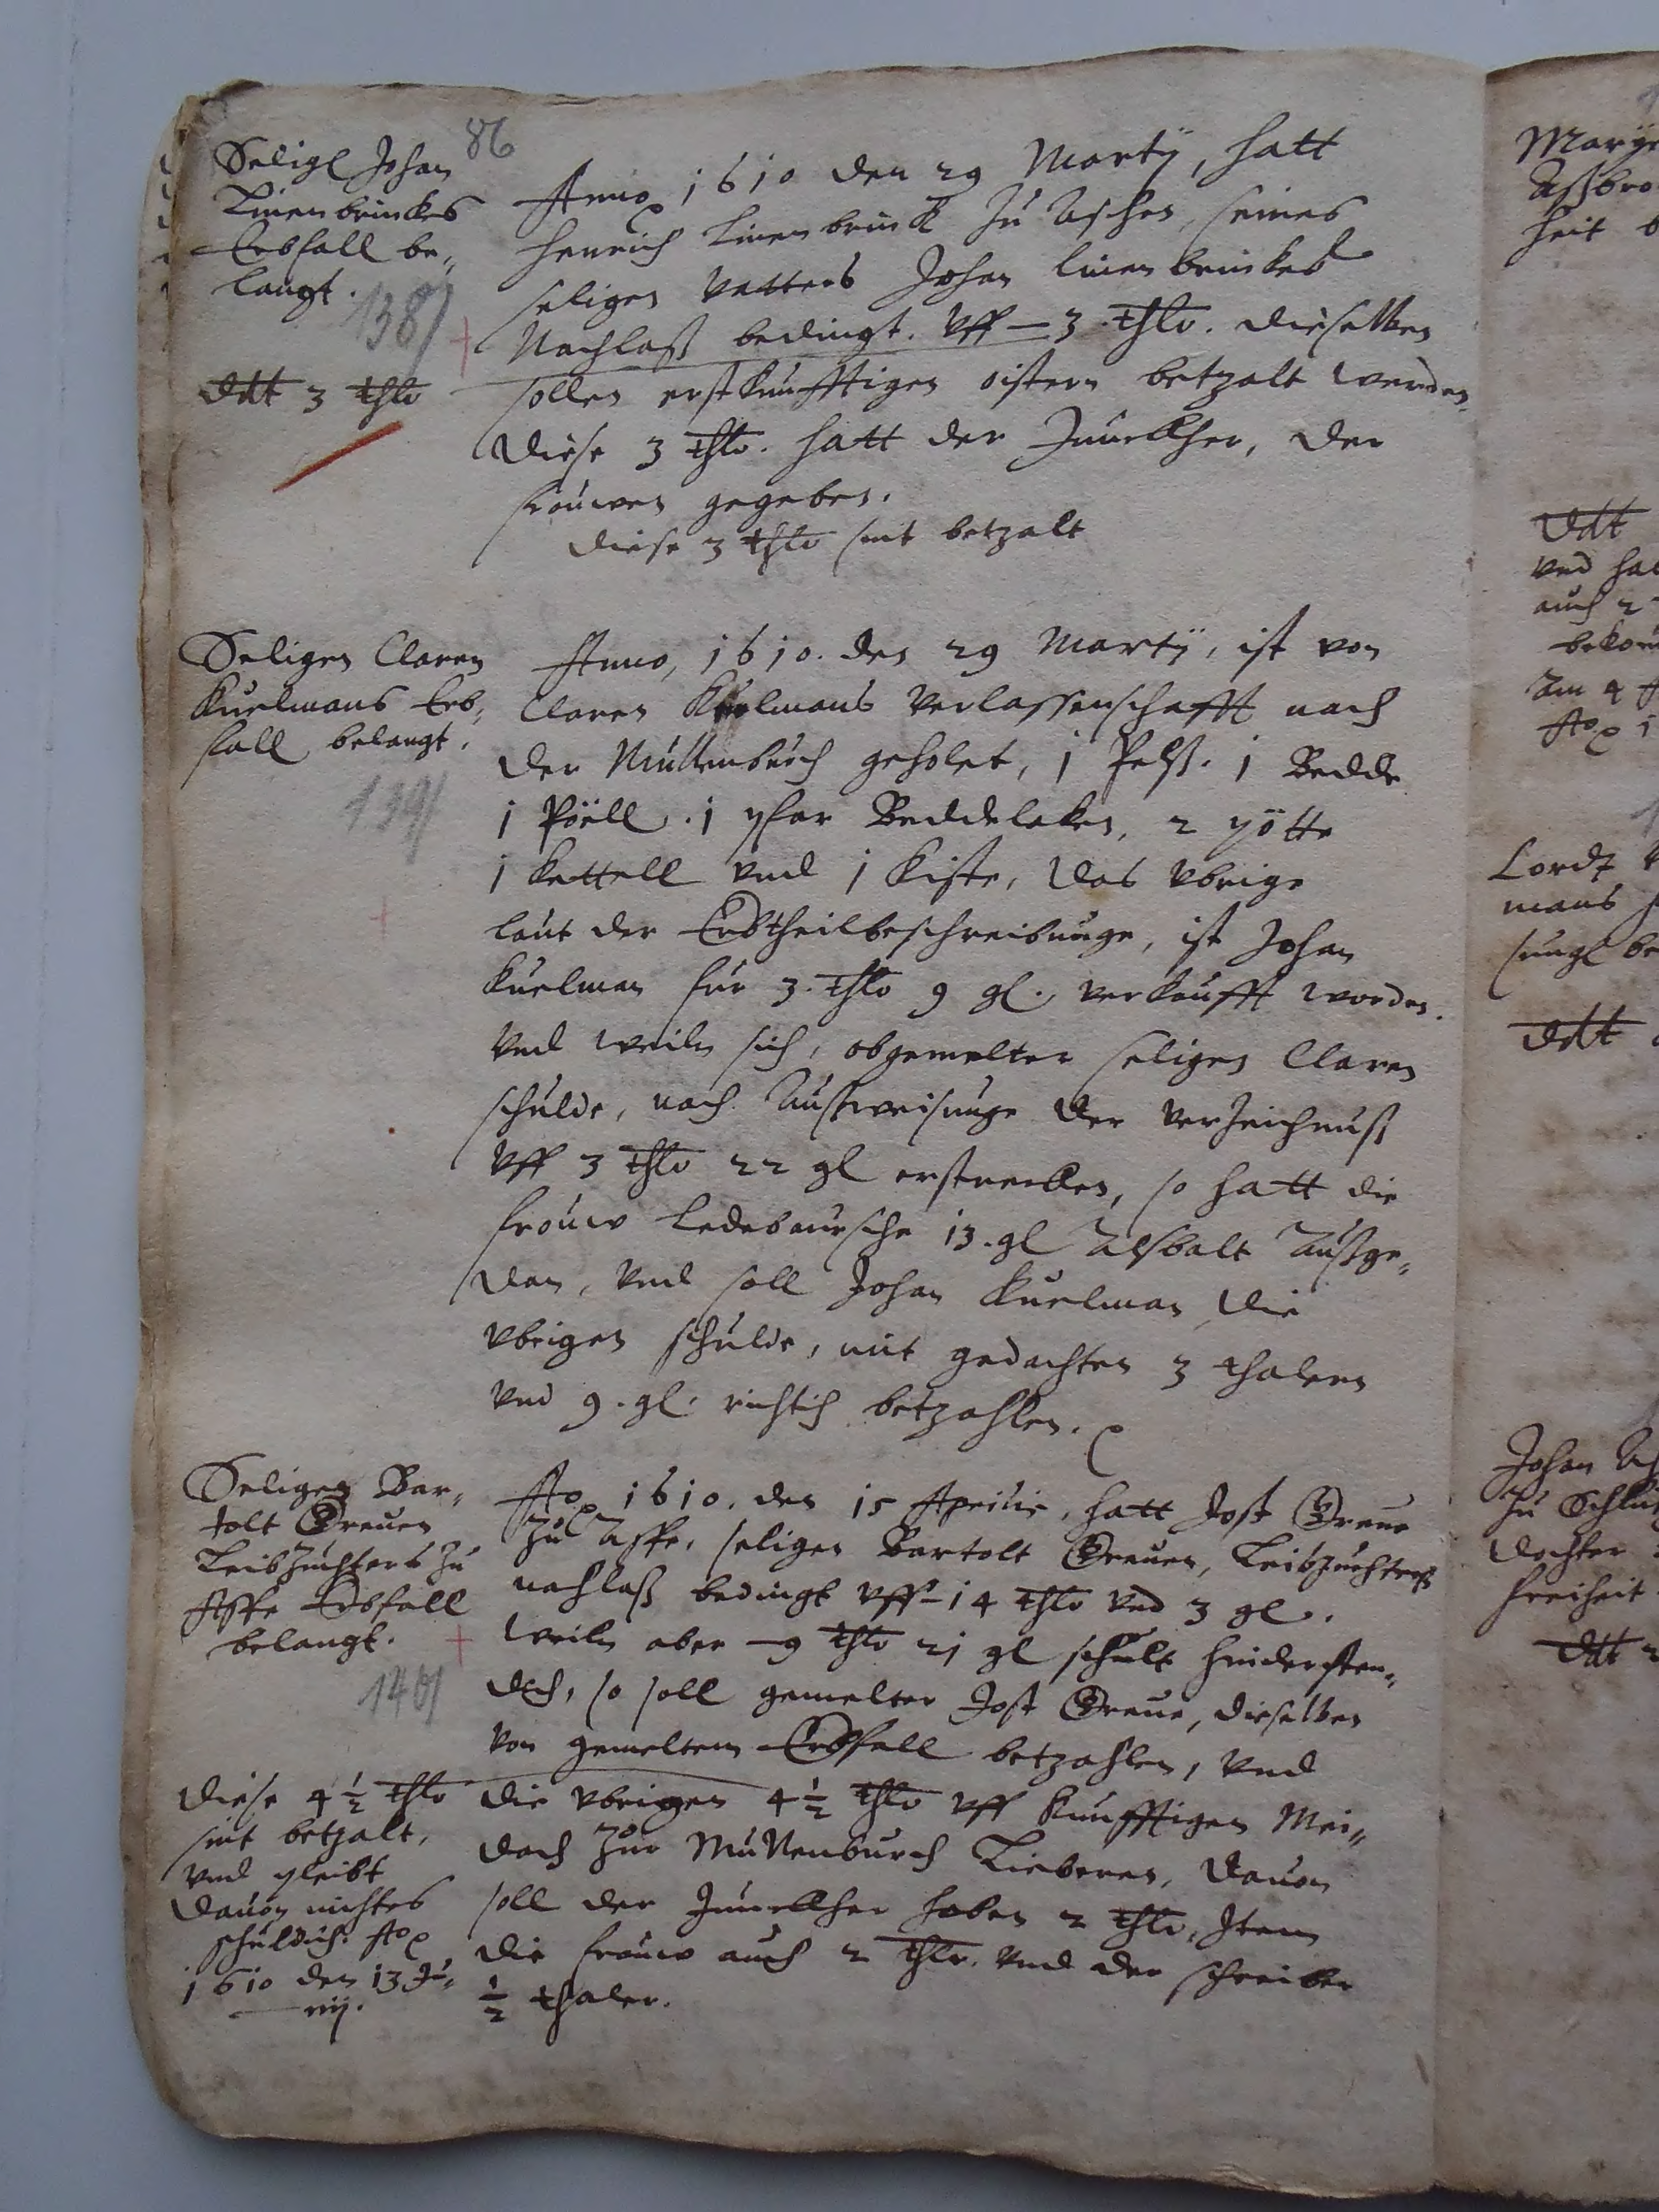 86
Selig Johan
Linenbrinckes
Erbfall be„
langt.
138/
ddt 3 thlr
Anno 1610 den 29 Martÿ, hatt
Henrich Linenbrinck zu Aschen, seines
seligen Vatters Johan Linenbrinckes
Nachlaß bedingt. Vff – 3. thlr. dieselben
sollen erstkunfftigen oistern betzalt werden.
diese 3 thlr. hatt der Junckher, der
frouwen gegeben.
diese 3 thlr sint betzalt
Seligen Claren
Kuelmans Erb„
fall belangt.
139/
Anno, 1610. den 29 Martÿ, ist von
Claren Kuelmans Verlassenschafft nach
der Mullenburch geholet, 1 Pelß. 1 Bedde
1 Pöell. 1 pfar Beddelaken, 2 pötte
1 kettell vnd 1 Kiste, das vbrige
laut der Erbtheilbeschreibunge, ist Johan
Kuelman fur 3. thlr 9 gl. verkaufft worden.
Vnd weiln sich, obgemelter seligen Claren
schulde, nach Außweisunge der verzeichnuß
Vff 3 thlr 22 gl erstrecken, so hatt die
frouw Ledebaursche 13. gl Alsbalt Außge„
dan, Vnd soll Johan Kuelman die
vbrigen schulde, mit gedachten 3 thalern
vnd 9. gl. richtich betzahlen.
Seligen Bar„
tolt Greuen
Leibzuchters zu
Aske Erbfall
belangt.
140/
Ao 1610. den 15 Aprilis, hatt Jost Greue
zu Aske, seligen Bartolt Greuen, Leibzuchters
nachlaß bedingt vff – 14 thlr vnd 3 gl.
weiln aber – 9 thlr 21 gl schult hindersten„
dch, so soll gemelter Jost Greue, dieselben
von gemeltem Erbfall betzahlen, vnd
die vbrigen 4 ½ thlr vff kunfftigen Mei„
dach zur Mullenburch Lieberen, dauon
soll der Junckher haben 2 thlr, Item
die frouw auch 2 thlr. vnd der schreiber
½ thaler.
diese 4 ½ thlr
sint betzalt,
vnd pleibt
dauon nichtes
schuldich. Ao
1610 den 13 Ju„
nij.
ddt
vnd
auch 2
ddt
Johan
zu
dochter
freiheit
ddt